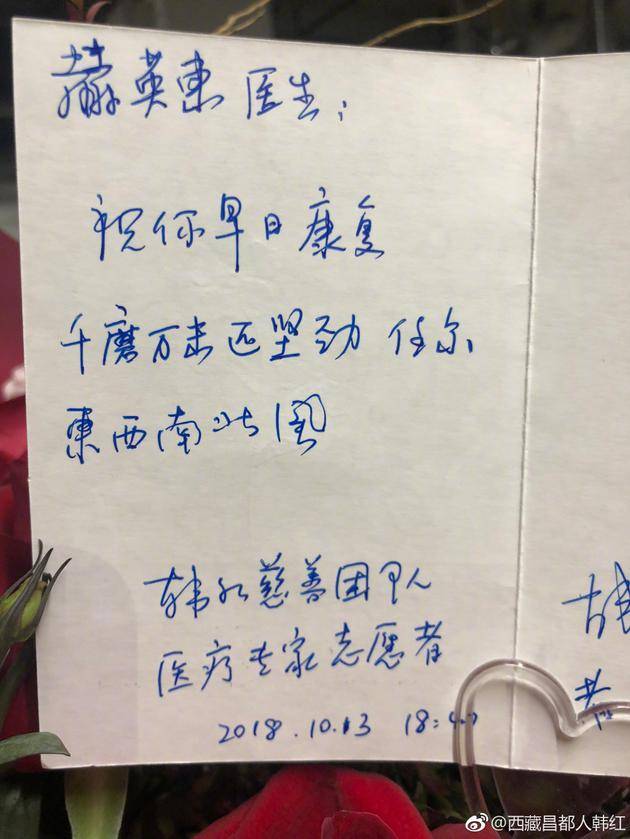 赫英東 医生：
祝你早日康复
千磨万击还坚劲 任尔
東西南北風
韩红慈善团队
医疗专家志愿者
2018.10.13
@西藏昌都人韩红